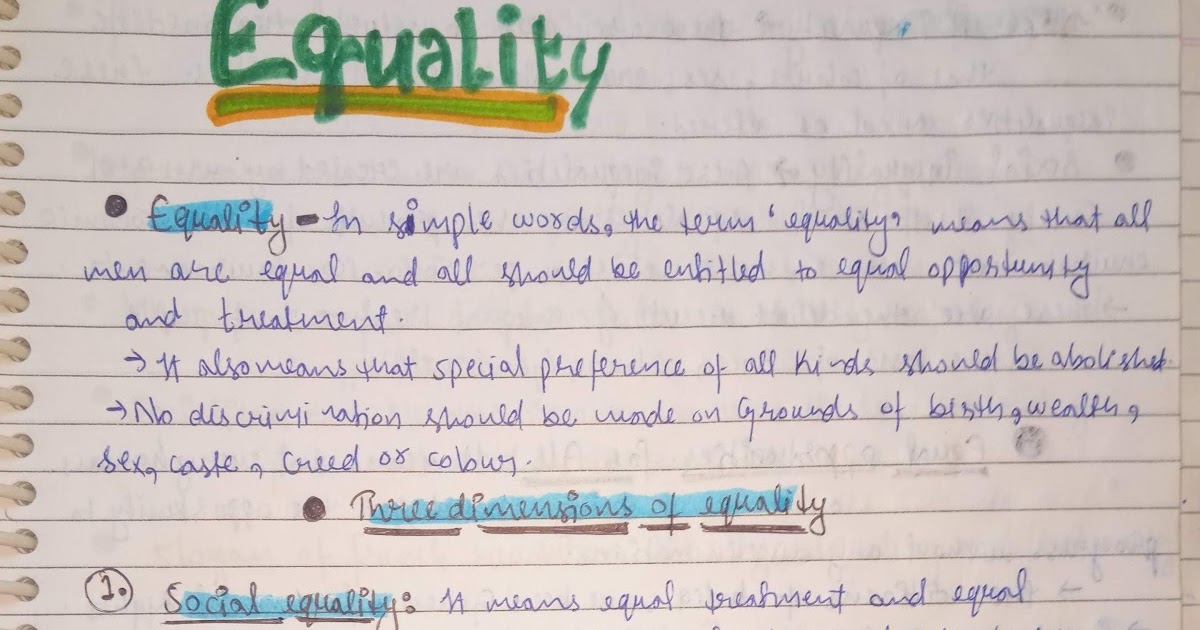 Equality
• Equality - In simple words, the term 'equality' means that all
men are equal and all should be entitled to equal opportunity
and treatment.
→ It also means that special preference of all kinds should be abolished.
→ No discrimination should be made on Grounds of birth, wealth,
sex, caste, creed or colour.
• Three dimensions of equality
1. Social equality: It means equal treatment and equal